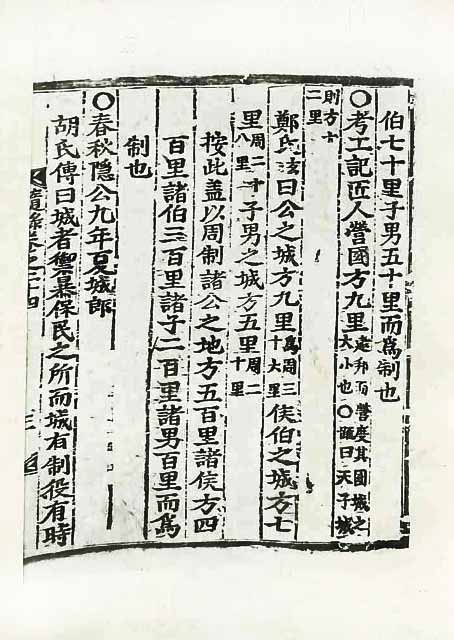 伯七十里子男五十里而為制也
○考工記匠人營國方九里建邦而營度其國城之大小也○疏曰天子城
則方十二里
鄭氏注曰公之城方九里為周三十六里侯伯之城方七
里周二十八里子男之城方五里周二十里
按此盖以周制諸公之地方五百里諸侯方四
百里諸伯三百里諸子二百里諸男百里而為
制也
○春秋隱公九年夏城郎
胡氏傳曰城者禦暴保民之所而城有制役有時
卷之二十四